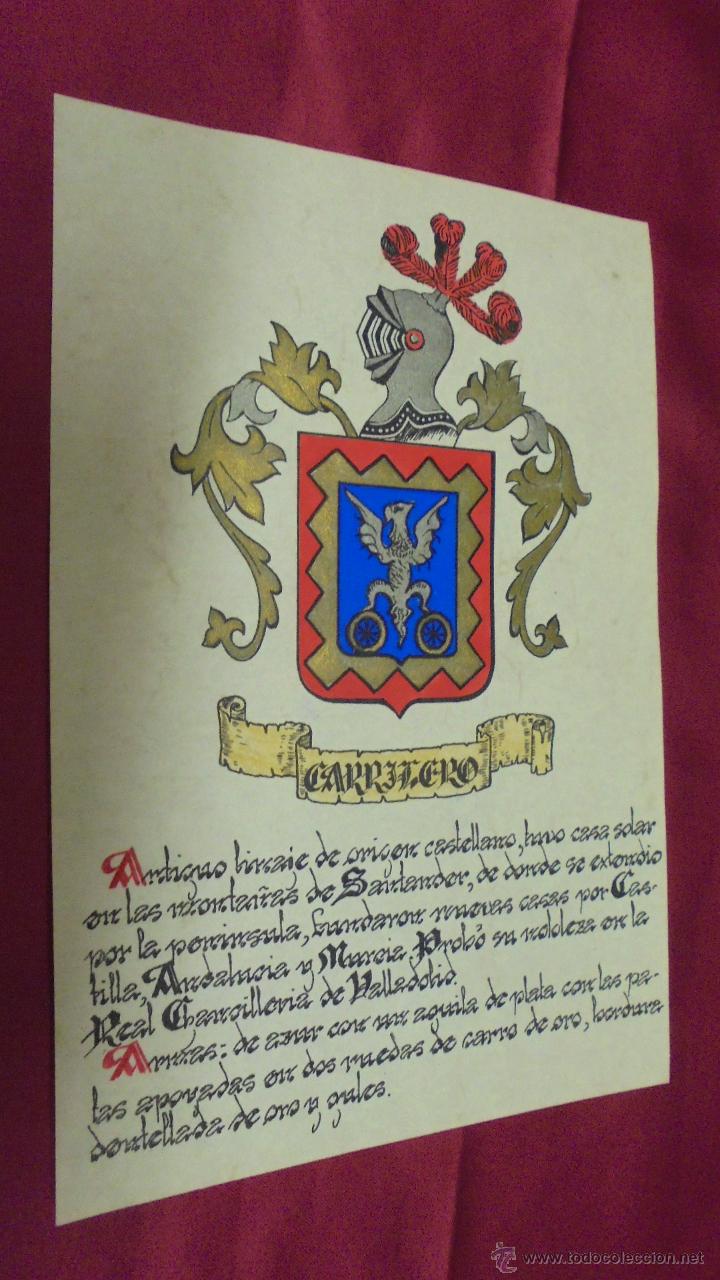 CARRILERO
Antiguo linaje de origen castellano, tuvo casa solar
en las montañas de Santander, de donde se extendio
por la peninsula, fundaron nuevas casas por Cas-
tilla, Andalucia y Murcia. Probó su nobleza en la
Real Chancilleria de Valladolid.
Armas: de azur con un aguila de plata con las pa-
tas apoyadas en dos ruedas de carro de oro, bordura
dentellada de oro y gules.
www.todocoleccion.net